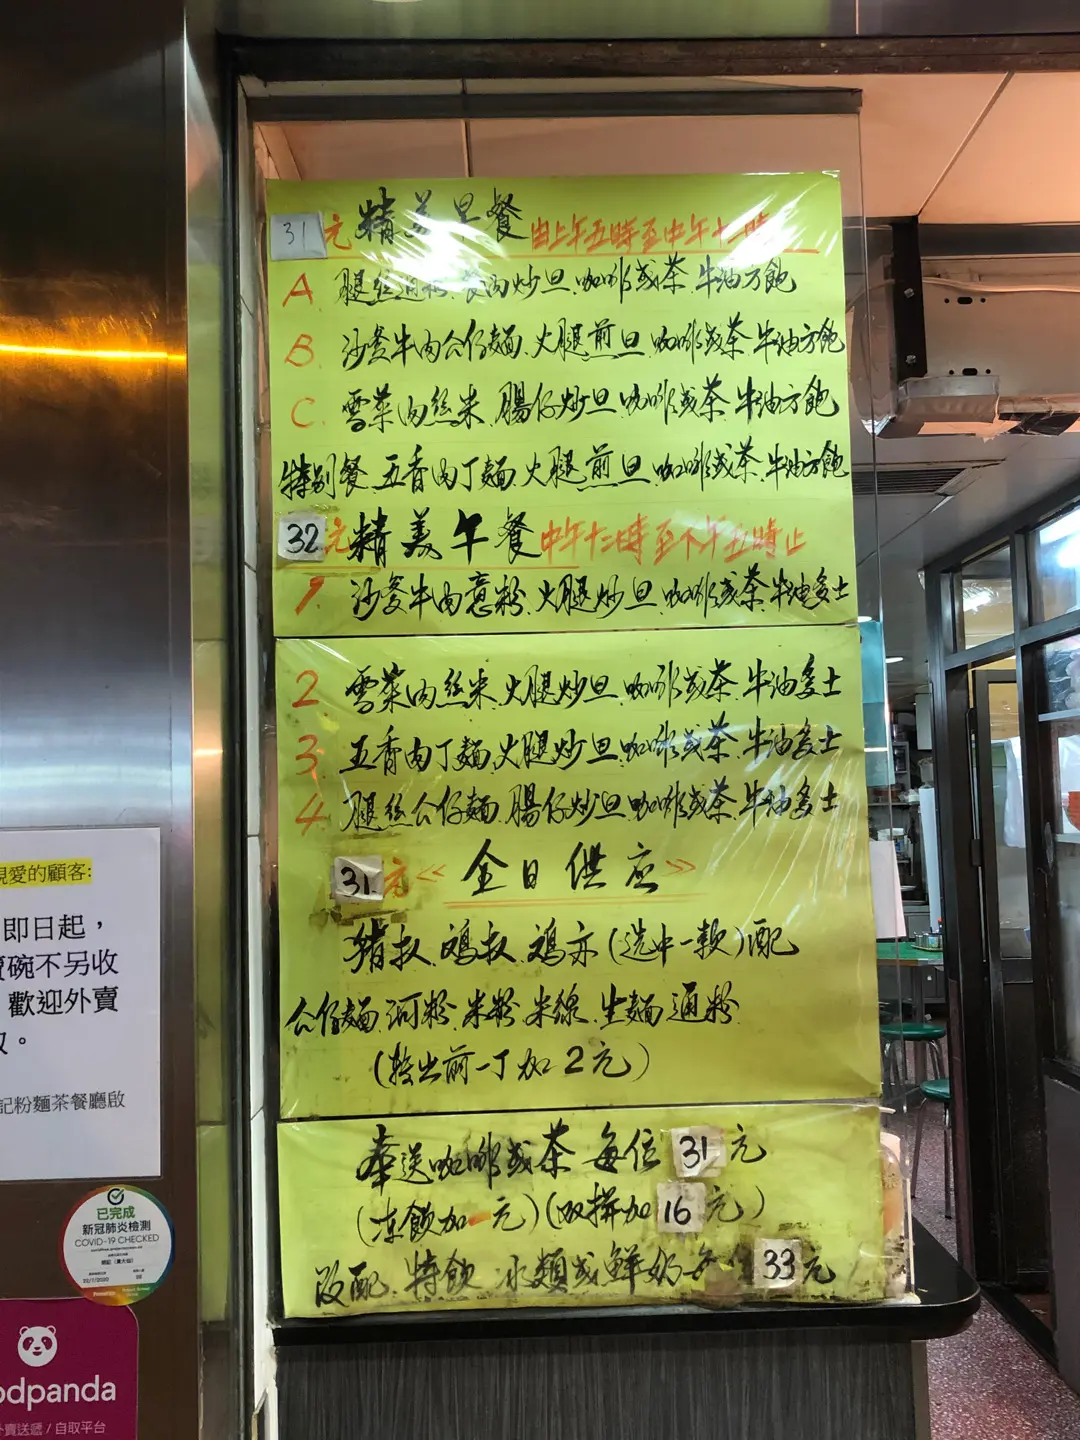 31元 精美早餐 由上午五時至中午十二時
A 腿絲通粉.餐肉炒旦.咖啡或茶.牛油方飽
B. 沙爹牛肉公仔麵.火腿前旦.咖啡或茶.牛油方飽
C. 雪菜肉絲米.腸仔炒旦.咖啡或茶.牛油方飽
特別餐.五香肉丁麵.火腿前旦.咖啡或茶.牛油方飽
32元 精美午餐 中午十二時至下午五時止
1. 沙爹牛肉意粉.火腿炒旦.咖啡或茶.牛油多士
2 雪菜肉絲米.火腿炒旦.咖啡或茶.牛油多士
3. 五香肉丁麵.火腿炒旦.咖啡或茶.牛油多士
4. 腿絲公仔麵.腸仔炒旦.咖啡或茶.牛油多士
31元 《全日供应》
猪扒.鸡扒.鸡亦(选中一款)配
公仔麵.河粉.米粉.米線.生麵.通粉
(転出前一丁加2元)
奉送咖啡或茶 每位31元
(冻飲加 元)(双拼加16元)
改配.特飲.冰類或鮮奶每位33元
親愛的顧客:
即日起，
碗不另收
歡迎外賣
。
記粉麵茶餐廳啟
已完成
新冠肺炎檢測
COVID-19 CHECKED
odpanda
外賣送遞 / 自取平台